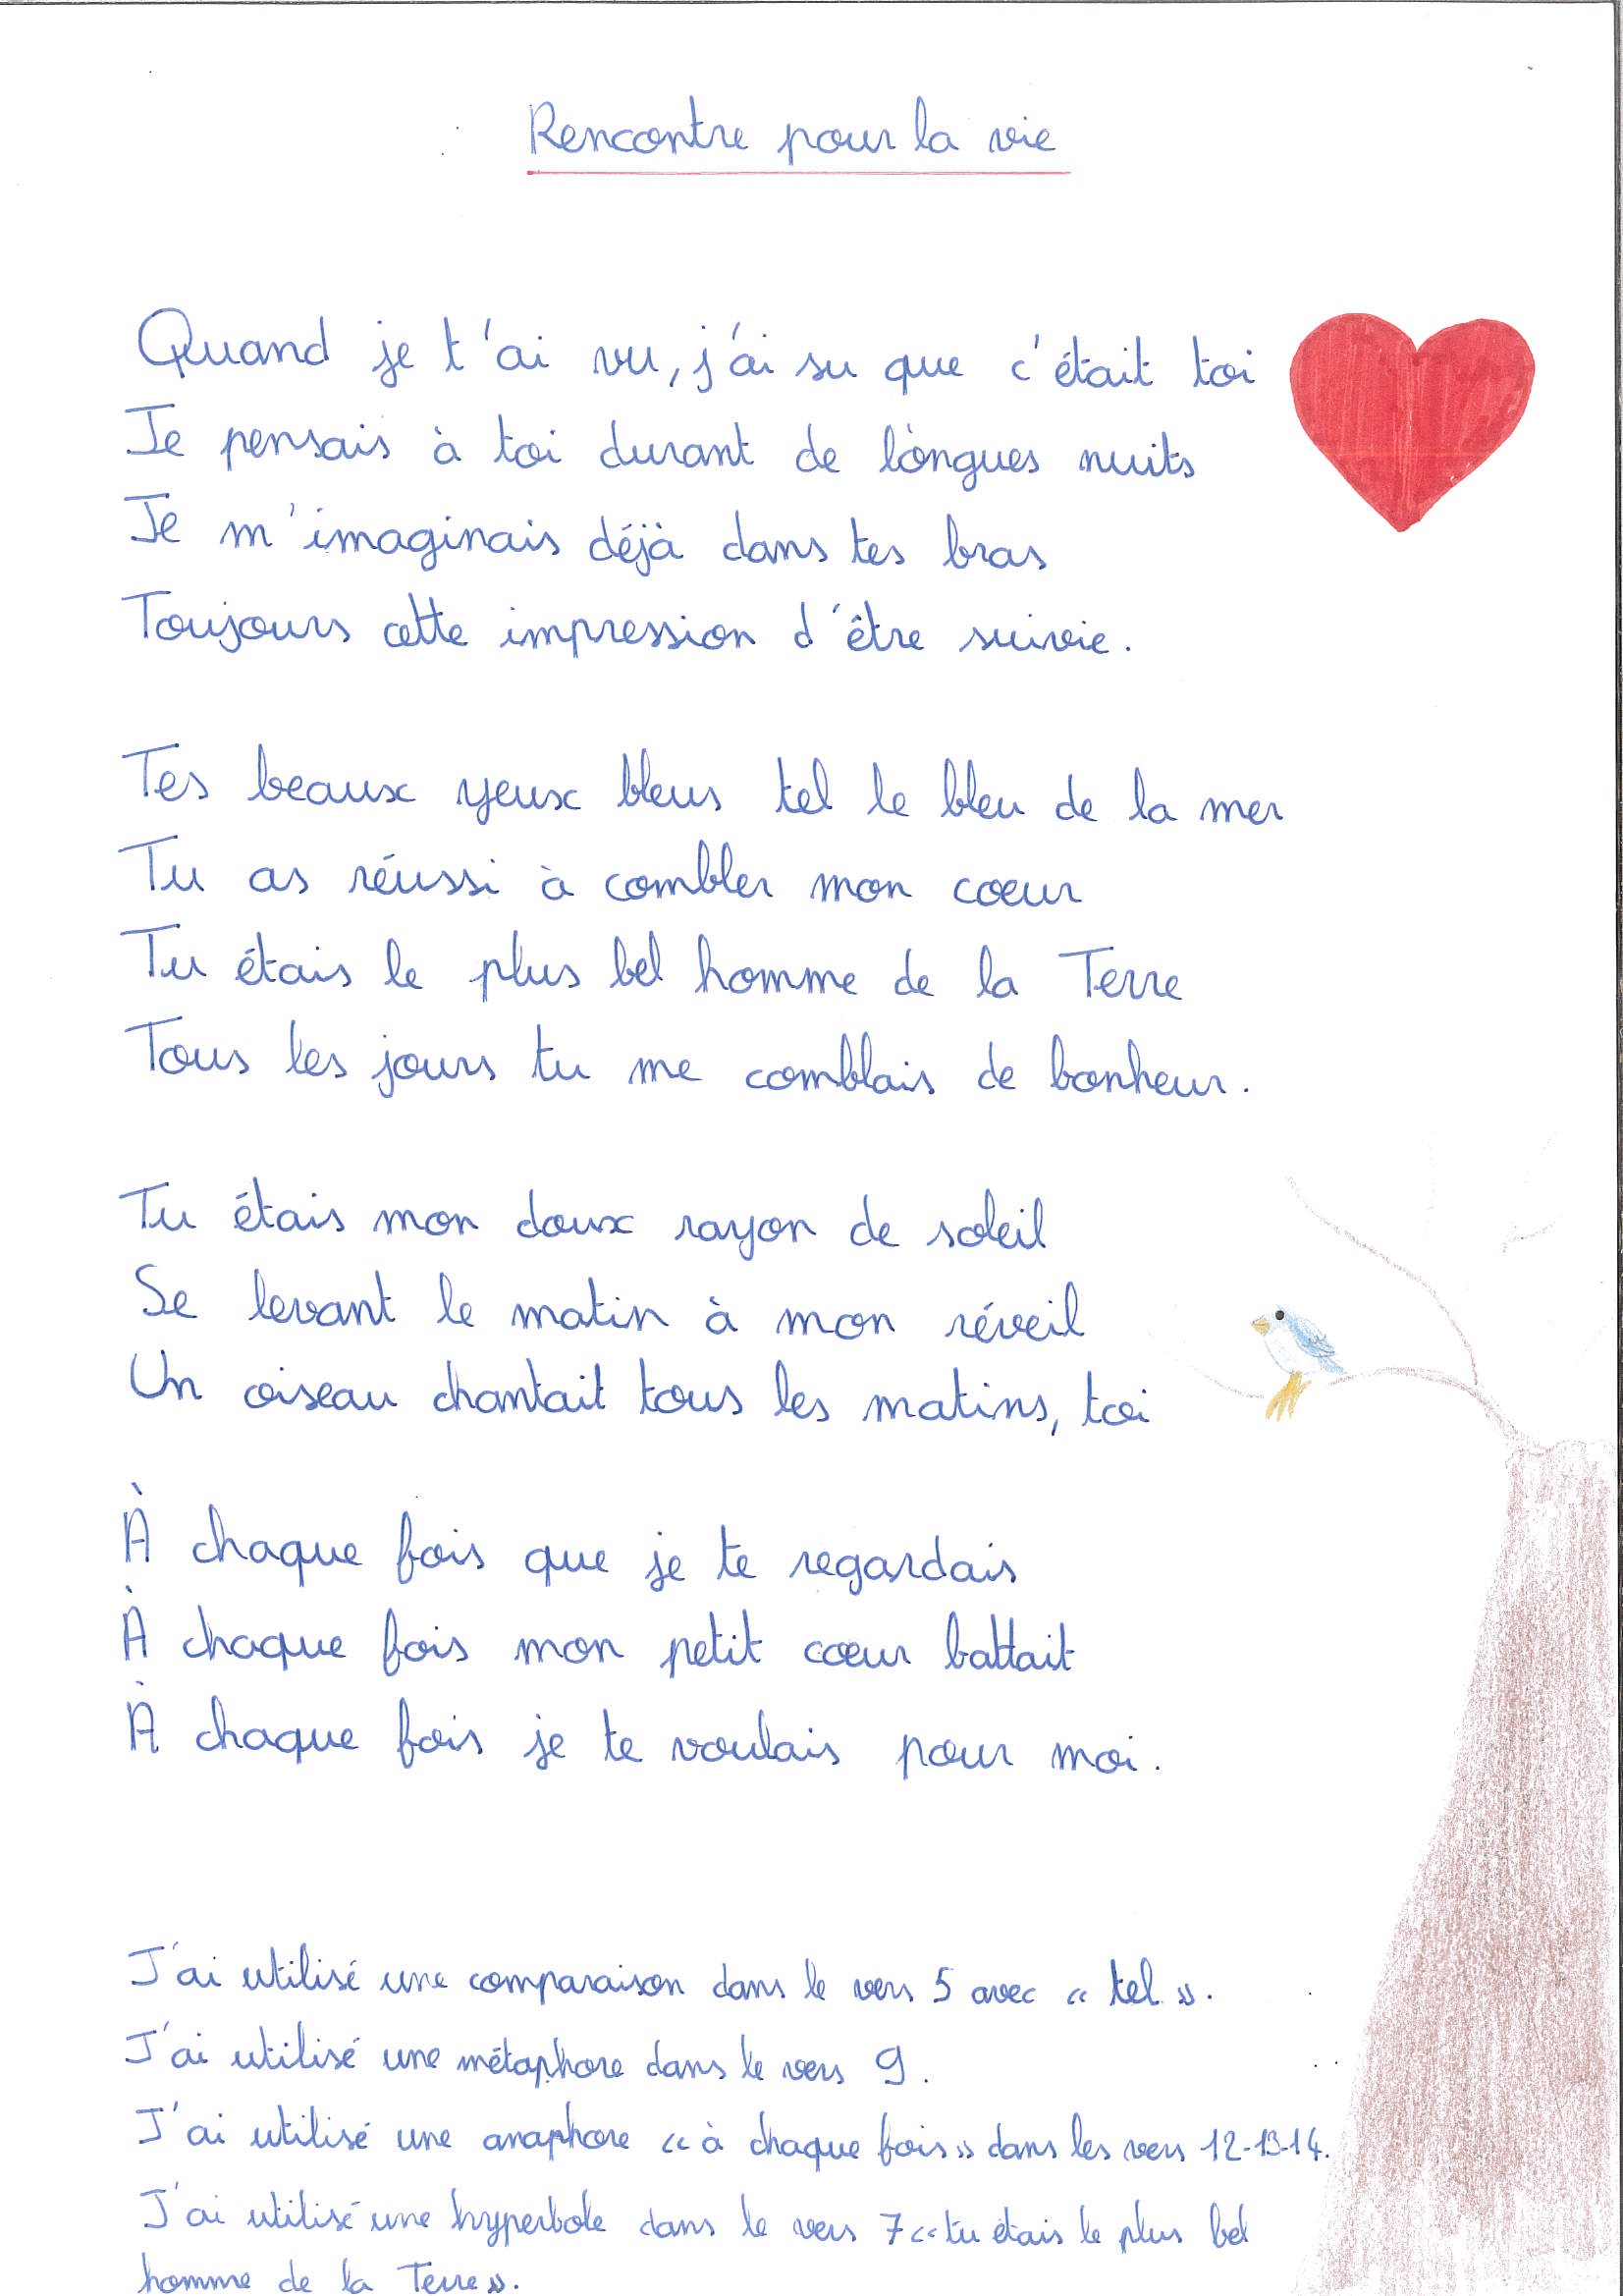 Rencontre pour la vie
Quand je t'ai vu, j'ai su que c'était toi
Je pensais à toi durant de longues nuits
Je m'imaginais déjà dans tes bras
Toujours cette impression d'être suivie.
Tes beaux yeux bleus tel le bleu de la mer
Tu as réussi à combler mon coeur
Tu étais le plus bel homme de la Terre
Tous les jours tu me comblais de bonheur.
Tu étais mon doux rayon de soleil
Se levant le matin à mon réveil
Un oiseau chantait tous les matins, toi
À chaque fois que je te regardais
À chaque fois mon petit cœur battait
À chaque fois je te voulais pour moi.
J'ai utilisé une comparaison dans le vers 5 avec « tel ».
J'ai utilisé une métaphore dans le vers 9.
J'ai utilisé une anaphore « à chaque fois » dans les vers 12-13-14.
J'ai utilisé une hyperbole dans le vers 7 « tu étais le plus bel
homme de la Terre ».